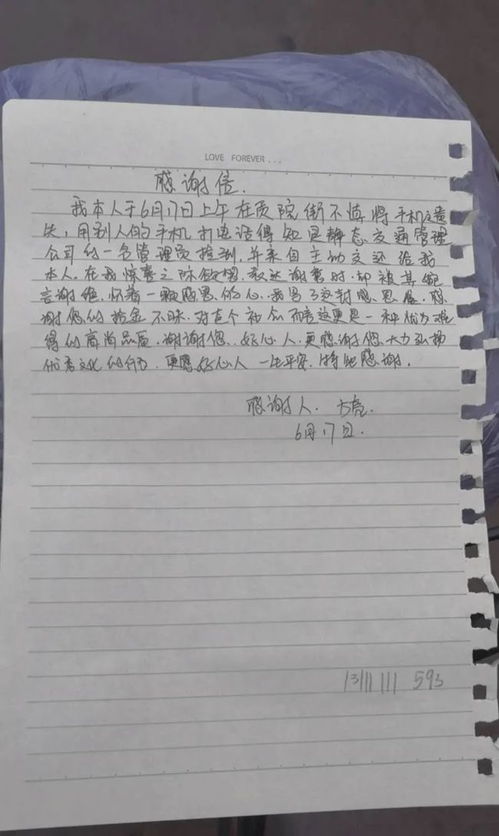 LOVE FOREVER...
感谢信.
我本人于6月17日上午在贡院街不慎将手机遗
失,用别人的手机打电话得知是静态交通管理
公司的一名管理员捡到,并亲自主动交还给我
本人,在我惊喜之际欲图表达谢意时,却被其婉
言谢绝,怀着一颗感恩的心,我写了这封感恩信,感
谢您的拾金不昧.对这个社会而言这更是一种优为难
得的高尚品质,谢谢您,好心人,更感谢您大力弘扬
优秀文化的行为,更愿好心人一生平安,特此感谢.
感谢人.方亮
6月17日.
13111111 593